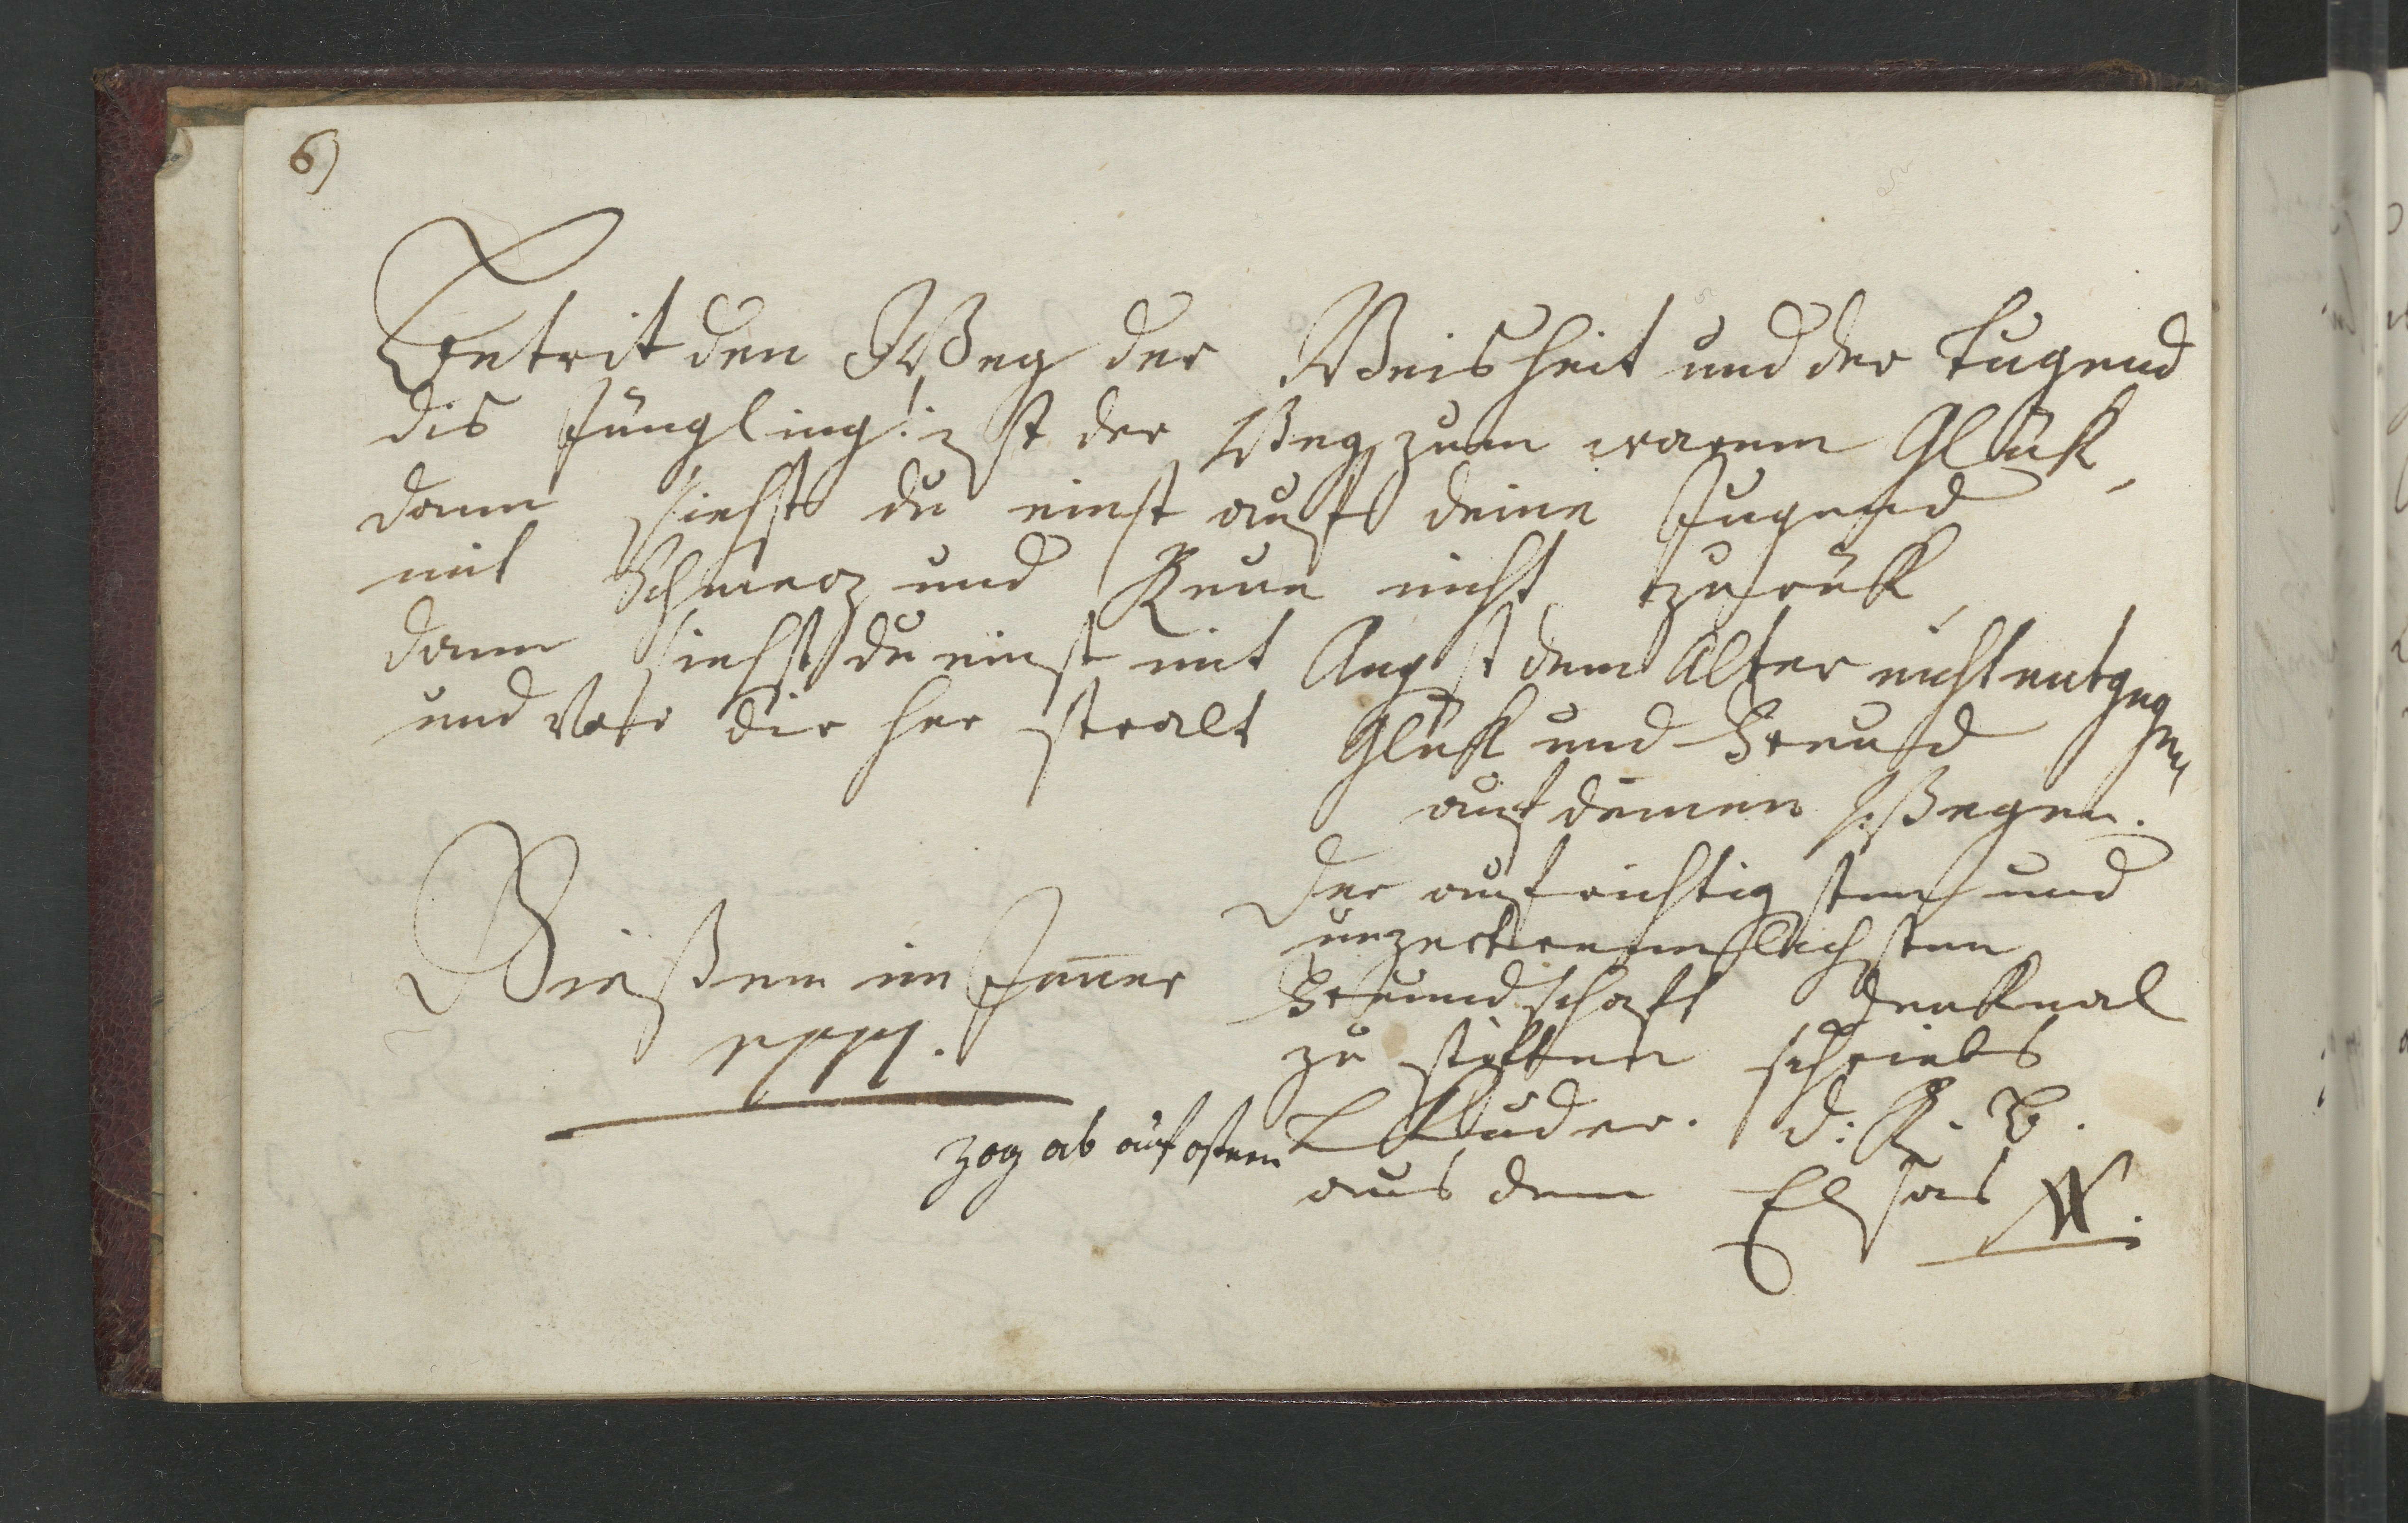 6)
Betrit den Weg der Weisheit und der Tugend
dis Jüngling! ist der Weg zum warem Glük,
dann siehst du einst auf deine Jugend
mit Schmerz und Reue nicht zurük,
dann siehst du einst mit Angst dem Alter nicht entgegen
und Vor dir her stralt Glük und Freud
auf deinen Wegen.
Der aufrichtigsten und
unzertrennlichsten
Freundschaft Denkmal
zu stiften schriebs
Gießen im Jenner
Luder. d: G. B.
zog ab auf ostern
aus dem Elsas